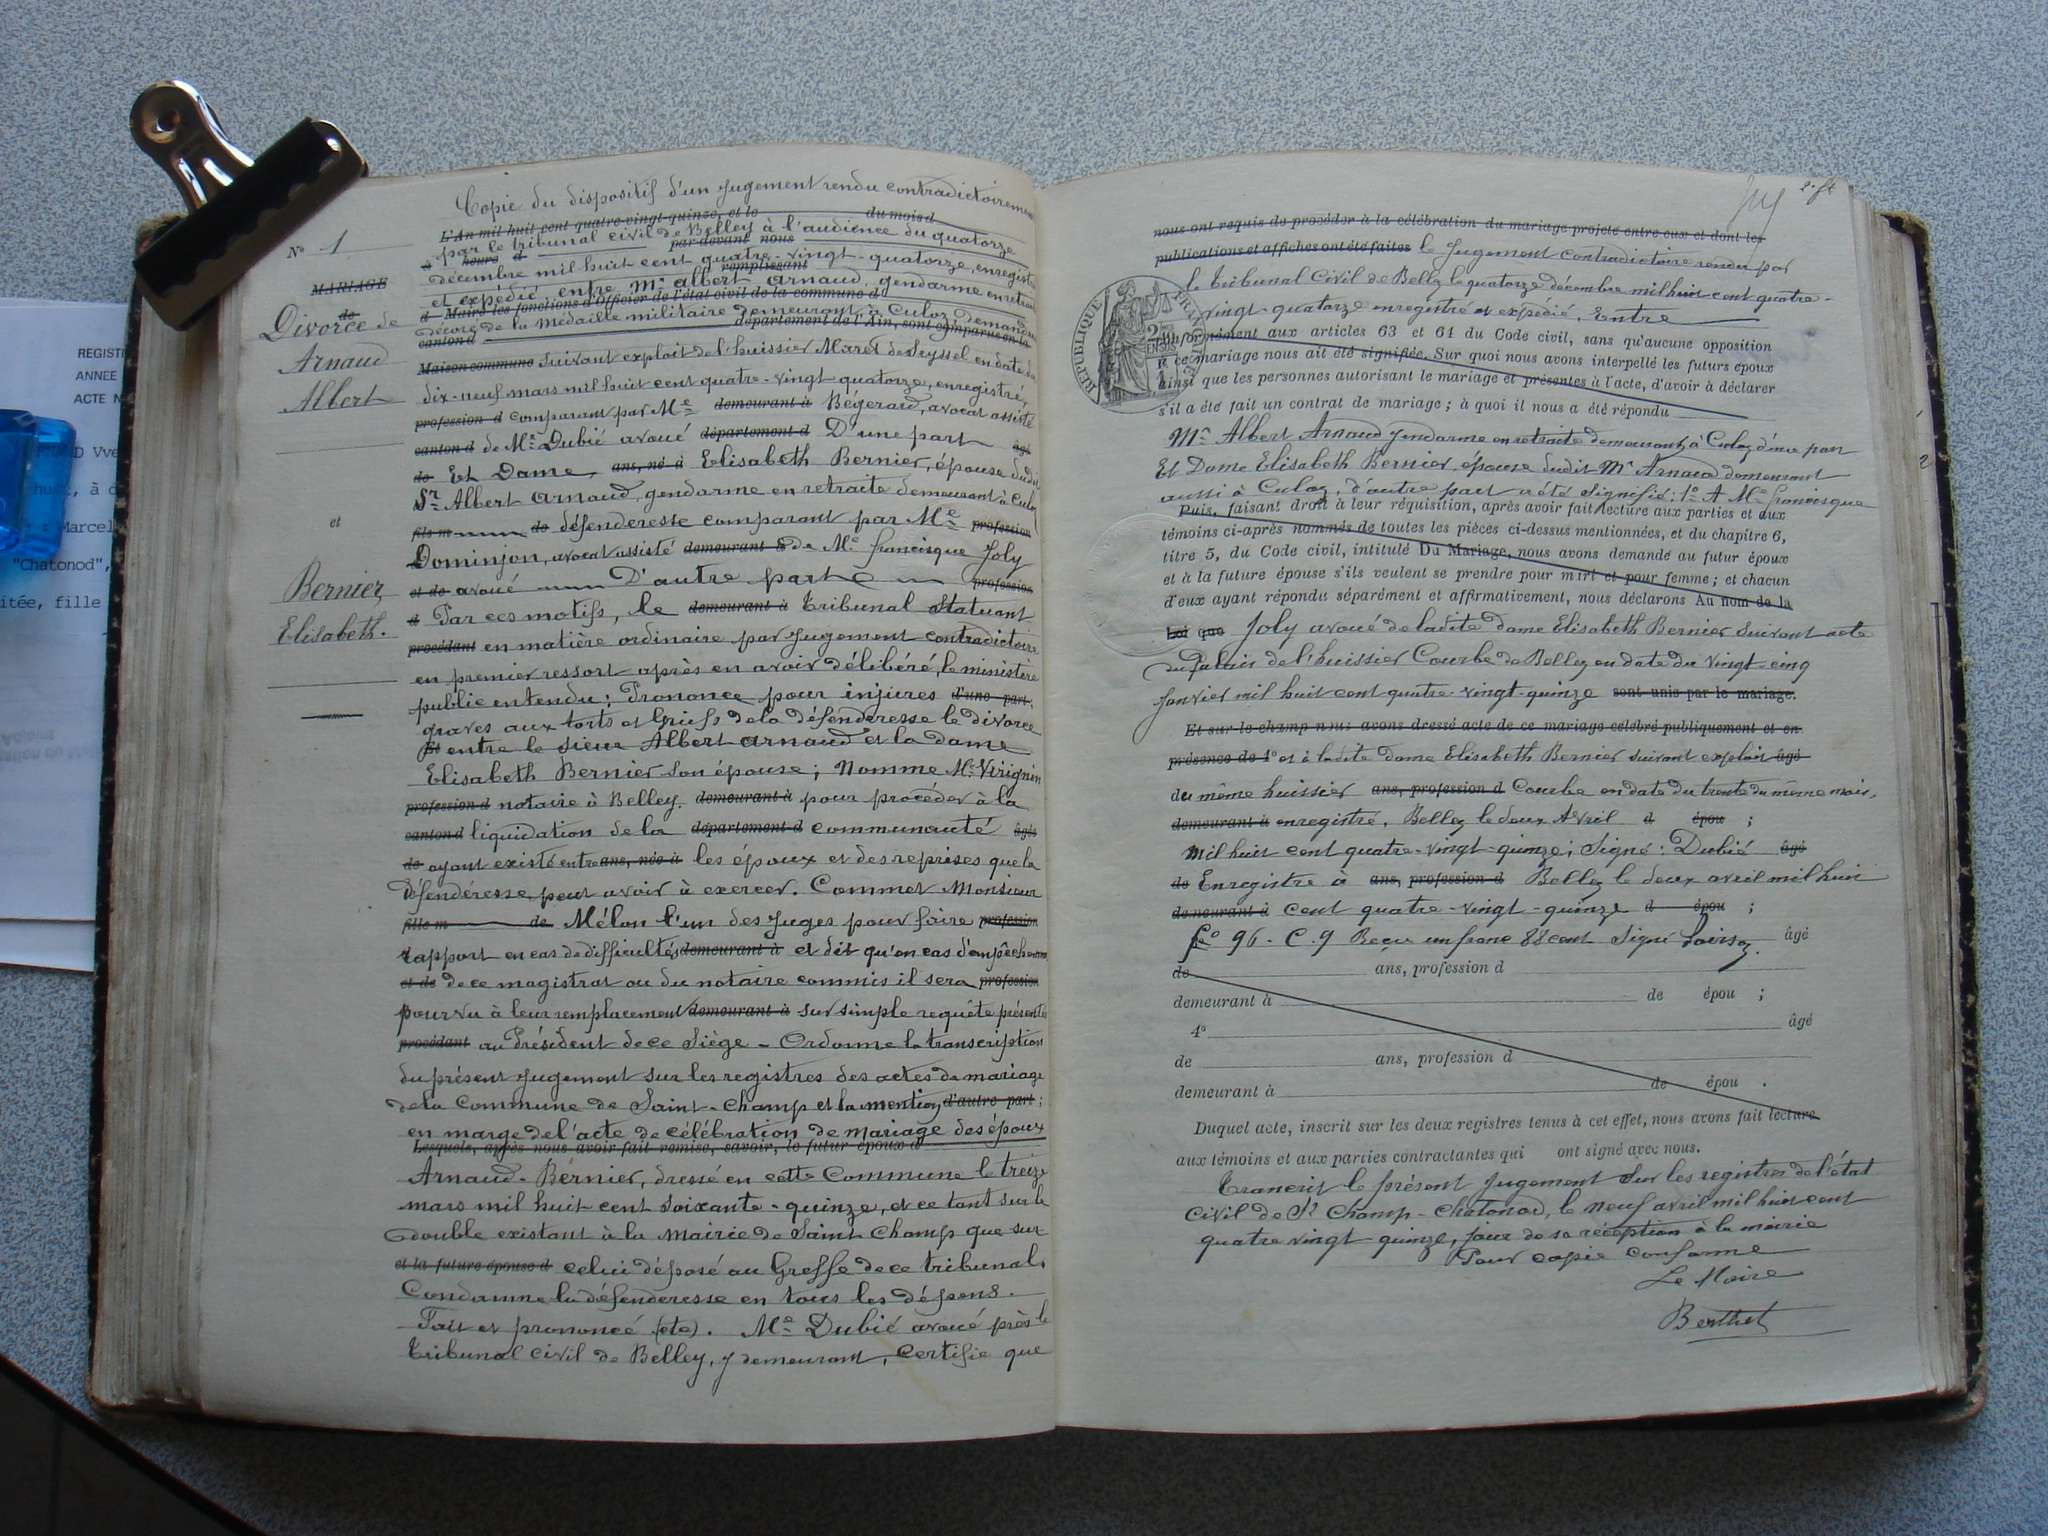 REGISTR
ANNEE
ACTE N
D Vve
hu, à d
: Marcel
"Chatonod",
itée, fille
Copie du dispositif d'un Jugement rendu contradictoirement
L'An mil huit cent quatre-vingt-quinze, et le du mois d
par le tribunal civil de Belley à l'audience du quatorze
à heure d par-devant nous
décembre mil huit cent quatre-vingt-quatorze, enregistré
remplissant
et expédié entre Mr albert arnaud, gendarme en retraite
d Maire les fonctions d'Officier de l'état civil de la commune d
décoré de la Médaille militaire demeurant à Culoz demandeur
canton d département de l'Ain, sont comparus en la
Maison commune Suivant exploit de l'huissier Maret de Seyssel en date du
dix-neuf mars mil huit cent quatre-vingt-quatorze, enregistré,
profession d comparant par Me demeurant à Bégerard, avocat assisté
canton d de Me Dubié avoué département d D'une part âgé
de Et Dame, ans, né à Elisabeth Bernier, épouse dudit
Sr Albert Arnaud, gendarme en retraite demeurant à Culoz
fils m de défenderesse comparant par Me profession
Dominjon, avocat assisté demeurant à de Me francisque Joly
et de avoué D'autre part profession
d Par ces motifs, le demeurant à Tribunal Statuant
procédant en matière ordinaire par Jugement contradictoire
en premier ressort après en avoir délibéré, le ministère
public entendu; Prononce pour injures d'une part;
graves aux torts et Griefs de la défenderesse le divorce
Et entre le sieur Albert Arnaud et la dame
Elisabeth Bernier son épouse; Nomme Me Virignin
profession d notaire à Belley. demeurant à pour procéder à la
canton d liquidation de la département d communauté âgée
de ayant existé entre ans, née à les époux et des reprises que la
défenderesse peut avoir à exercer. Commet Monsieur
fille m de Mélon l'un des Juges pour faire profession
rapport en cas de difficultés demeurant à et dit qu'en cas d'empêchement
et de de ce magistrat ou du notaire commis il sera profession
pourvu à leur remplacement demeurant à sur simple requête présentée
procédant au Président de ce Siège - Ordonne la transcription
du présent Jugement sur les registres des actes de mariage
de la Commune de Saint-Champ et la mention d'autre part;
en marge de l'acte de célébration de mariage des époux
Lesquels, après nous avoir fait remise, savoir, le futur époux d
Arnaud-Bernier, dressé en cette Commune le treize
mars mil huit cent soixante-quinze, et ce tant sur le
double existant à la Mairie de Saint Champ que sur
et la future épouse d celui déposé au Greffe de ce tribunal.
Condamne la défenderesse en tous les dépens.
Fait et prononcé (etc). Me Dubié avoué près le
tribunal civil de Belley, y demeurant, Certifie que
No 1
MARIAGE
de
Divorce de
Arnaud
Albert
et
Bernier,
Elisabeth.
nous ont requis de procéder à la célébration du mariage projeté entre eux et dont les
publications et affiches ont été faites le Jugement contradictoire rendu par
le Tribunal Civil de Belley le quatorze décembre mil huit cent quatre-
vingt quatorze enregistré et expédié. Entre
REPUBLIQUE FRANÇAISE
conformément aux articles 63 et 64 du Code civil, sans qu'aucune opposition
à ce mariage nous ait été signifiée. Sur quoi nous avons interpellé les futurs époux
ainsi que les personnes autorisant le mariage et présentes à l'acte, d'avoir à déclarer
s'il a été fait un contrat de mariage; à quoi il nous a été répondu
Mr Albert Arnaud gendarme en retraite demeurant à Culoz d'une part
Et Dame Elisabeth Bernier, épouse dudit Mr Arnaud demeurant
aussi à Culoz, d'autre part a été signifié: 1o A Me francisque
Puis, faisant droit à leur réquisition, après avoir fait lecture aux parties et aux
témoins ci-après nommés de toutes les pièces ci-dessus mentionnées, et du chapitre 6,
titre 5, du Code civil, intitulé Du Mariage, nous avons demandé au futur époux
et à la future épouse s'ils veulent se prendre pour mari et pour femme; et chacun
d'eux ayant répondu séparément et affirmativement, nous déclarons Au nom de la
Loi que Joly avoué de ladite dame Elisabeth Bernier Suivant acte
du Palais de l'huissier Courbe de Belley en date du vingt-cinq
Janvier mil huit cent quatre-vingt-quinze sont unis par le mariage.
Et sur-le-champ nous avons dressé acte de ce mariage célébré publiquement et en
présence de 1o et à ladite dame Elisabeth Bernier suivant exploit âgé
du même huissier ans, profession d Courbe en date du trente du même mois,
demeurant à enregistré. Belley le deux Avril d épou ;
mil huit cent quatre-vingt-quinze; Signé: Dubié âgé
de Enregistré à ans, profession d Belley le deux avril mil huit
demeurant à cent quatre-vingt-quinze d épou ;
fo 96 - C. 9 Reçu un franc 88 cent Signé Loirsoz. âgé
de ans, profession d
demeurant à de épou ;
4o âgé
de ans, profession d
demeurant à de épou .
Duquel acte, inscrit sur les deux registres tenus à cet effet, nous avons fait lecture
aux témoins et aux parties contractantes qui ont signé avec nous.
Transcrit le présent Jugement sur les registres de l'état
Civil de St Champ-Chatonod, le neuf avril mil huit cent
quatre vingt quinze, jour de sa réception à la mairie
Pour copie conforme
Le Maire
Berthet